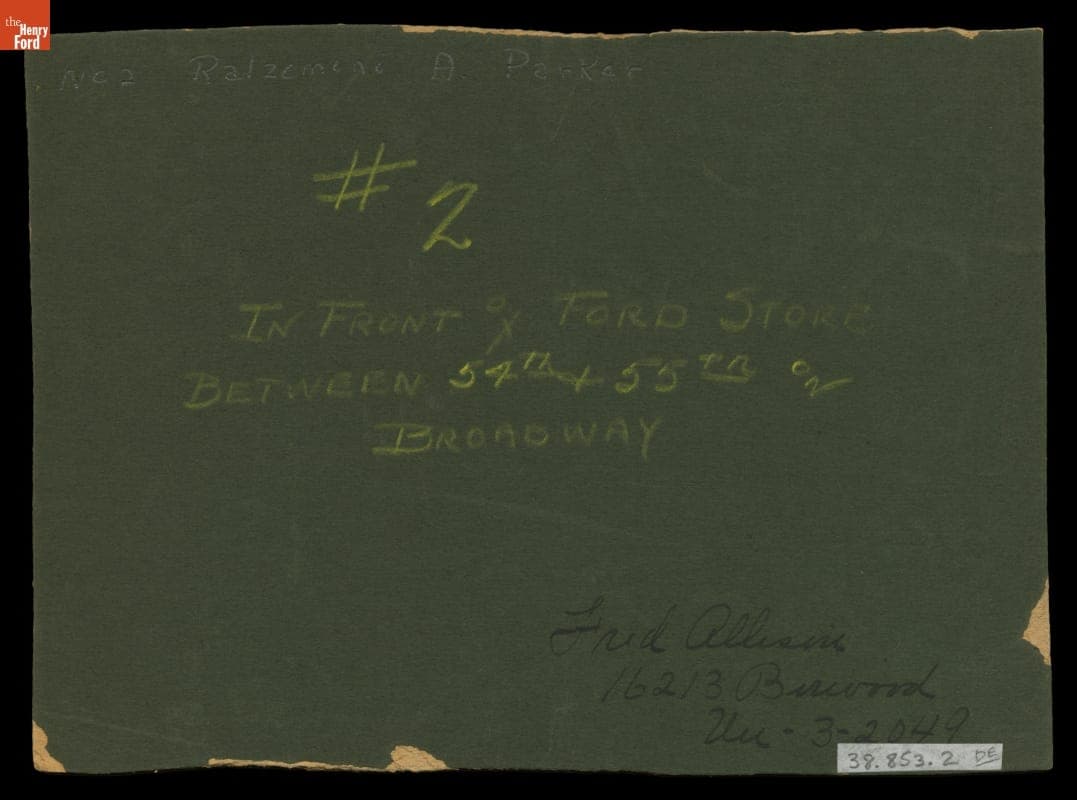 the Henry Ford
No 2 Ralzemond A. Parker
# 2
IN FRONT of FORD STORE
BETWEEN 54TH + 55TH on
BROADWAY
Fred Allison
16213 Birwood
Un-3-2049
38.853.2 DE